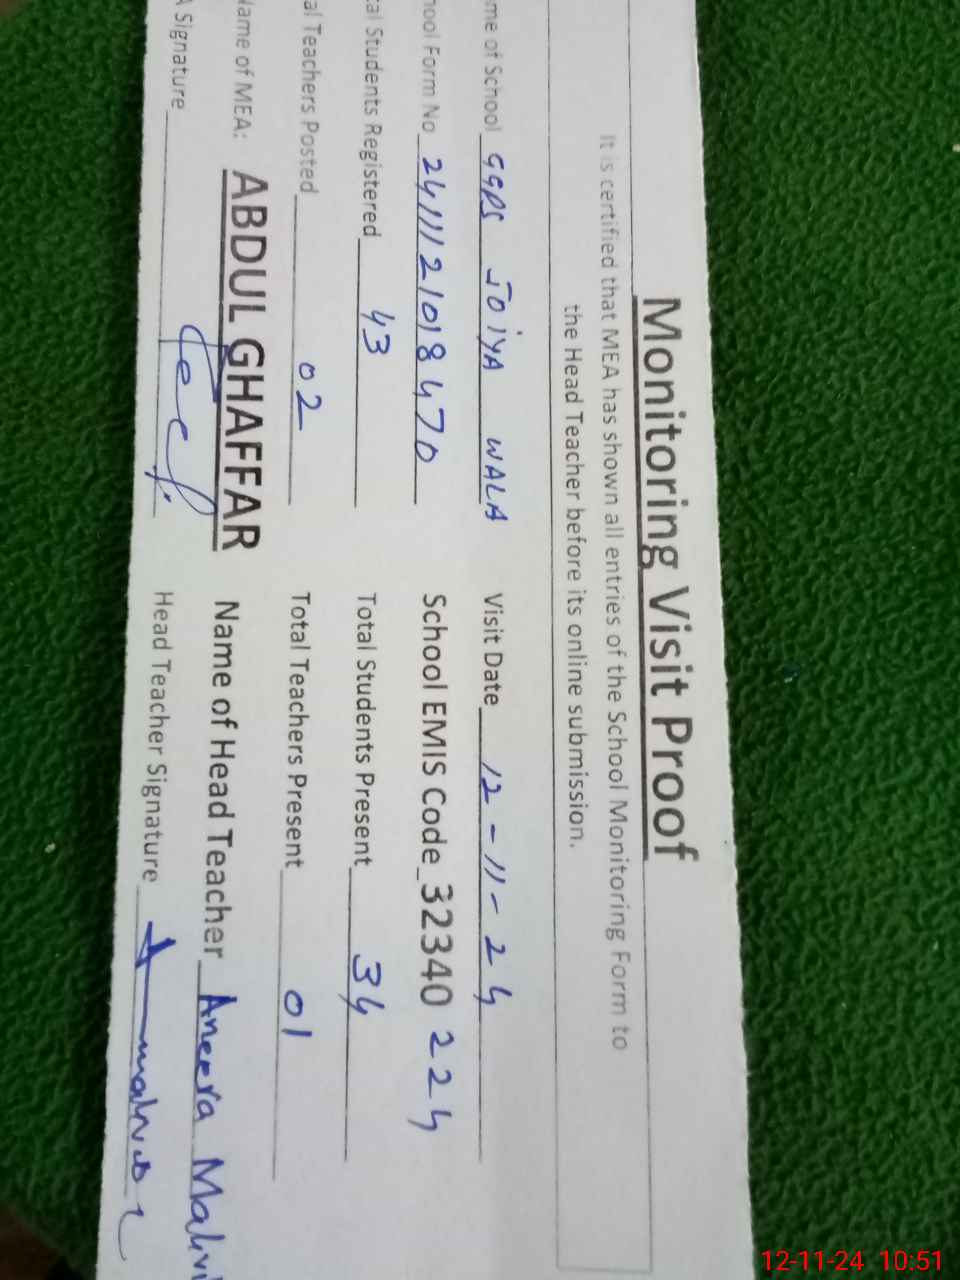 Monitoring Visit Proof
It is certified that MEA has shown all entries of the School Monitoring Form to
the Head Teacher before its online submission.
me of School GGPS JOIYA WALA Visit Date 12-11-24
hool Form No 2411121018470 School EMIS Code 32340 224
tal Students Registered 43 Total Students Present 34
al Teachers Posted 02 Total Teachers Present 01
Name of MEA: ABDUL GHAFFAR Name of Head Teacher Aneera
A Signature Head Teacher Signature
12-11-24 10:51